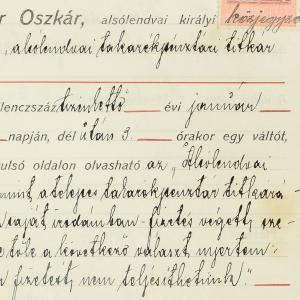 r Oszkár, alsólendvai királyi közjegyző
, alsólendvai takarékpénztári titkár
lenczszáz tizenkettő évi január
napján, dél után 3 órakor egy váltót,
ulsó oldalon olvasható az „Alsólendvai
mint a telepes takarékpénztár titkárá-
saját irodámban fizetés végett, sze-
tőle a következő választ nyertem:
fizetést nem teljesíthetünk."